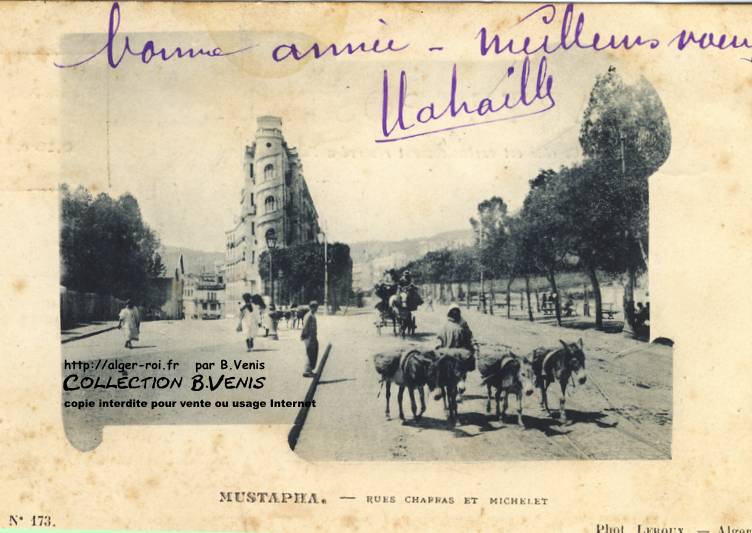 bonne année - meilleurs voeux
http://alger-roi.fr par B.Venis
COLLECTION B.VENIS
copie interdite pour vente ou usage Internet
MUSTAPHA. — RUES CHARRAS ET MICHELET
N° 173.
Phot. LEROUX. — Alger